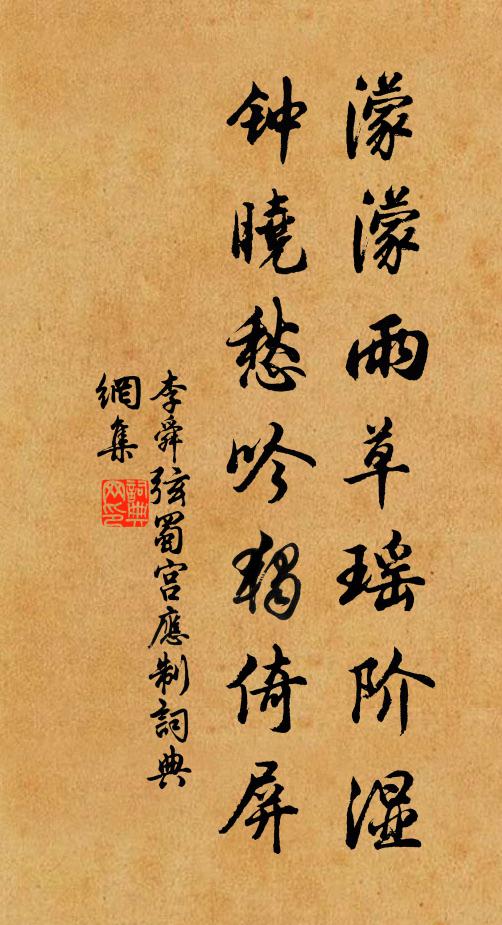 濛濛雨草瑶阶湿
钟曉愁吟獨倚屏
李舜弦蜀宫應制詞典
網集
詞典網印